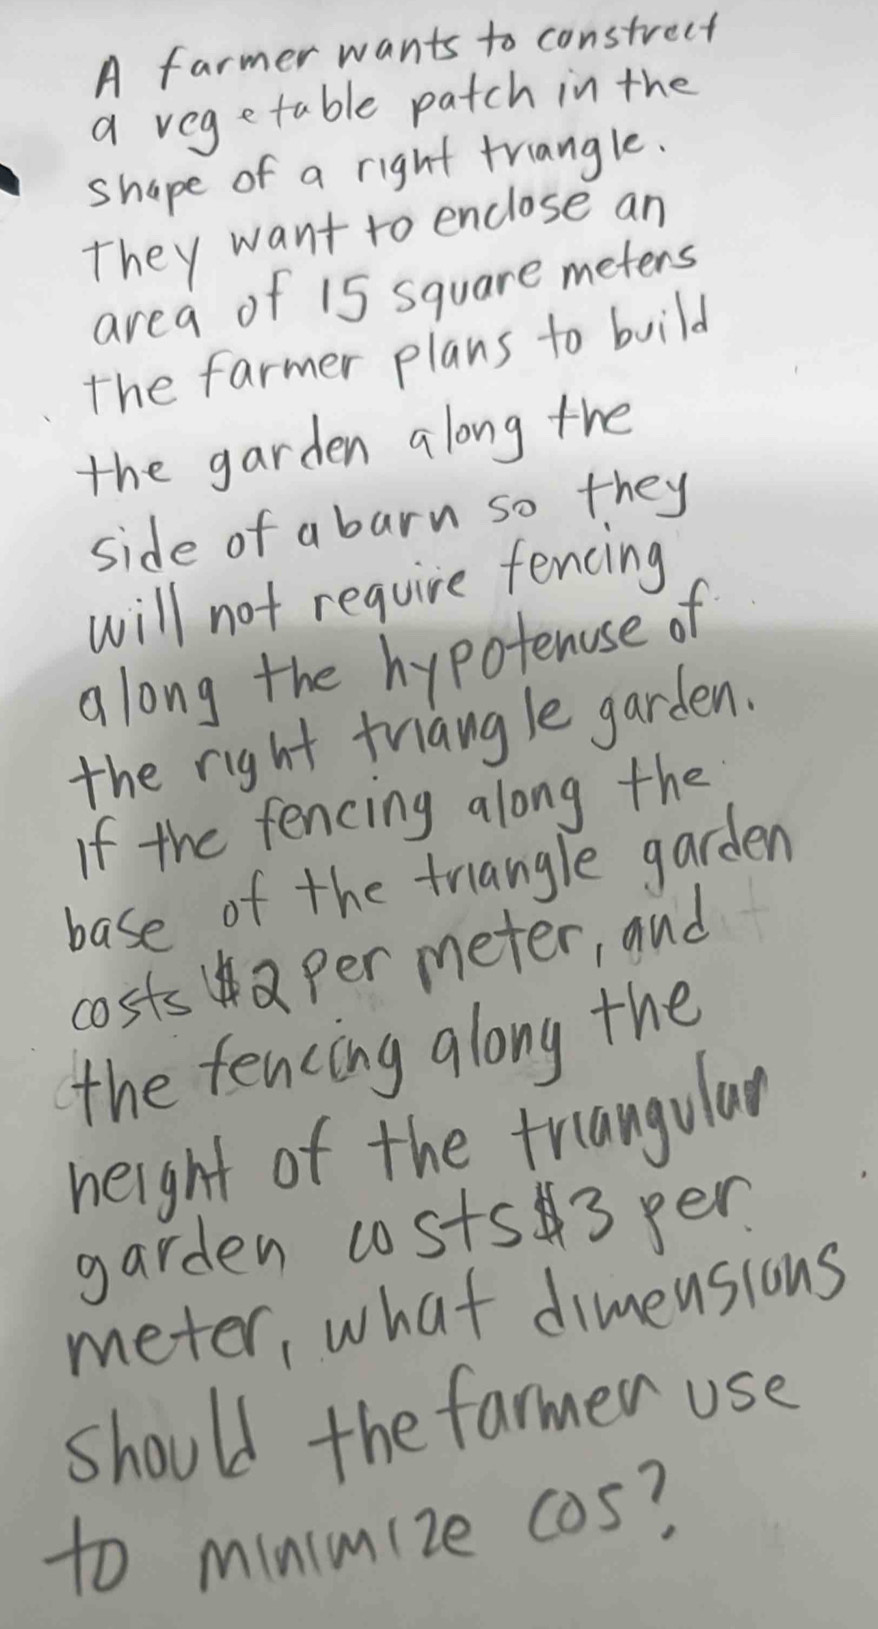 A farmer wants to construct
a vegetable patch in the
shape of a right triangle.
They want to enclose an
area of 15 square meters
the farmer plans to build
the garden along the
side of a barn so they
will not require fencing
along the hypotenuse of
the right triangle garden.
If the fencing along the
base of the triangle garden
costs $2 per meter, and
the fencing along the
height of the triangular
garden costs $3 per
meter, what dimensions
should the farmer use
to minimize cos?